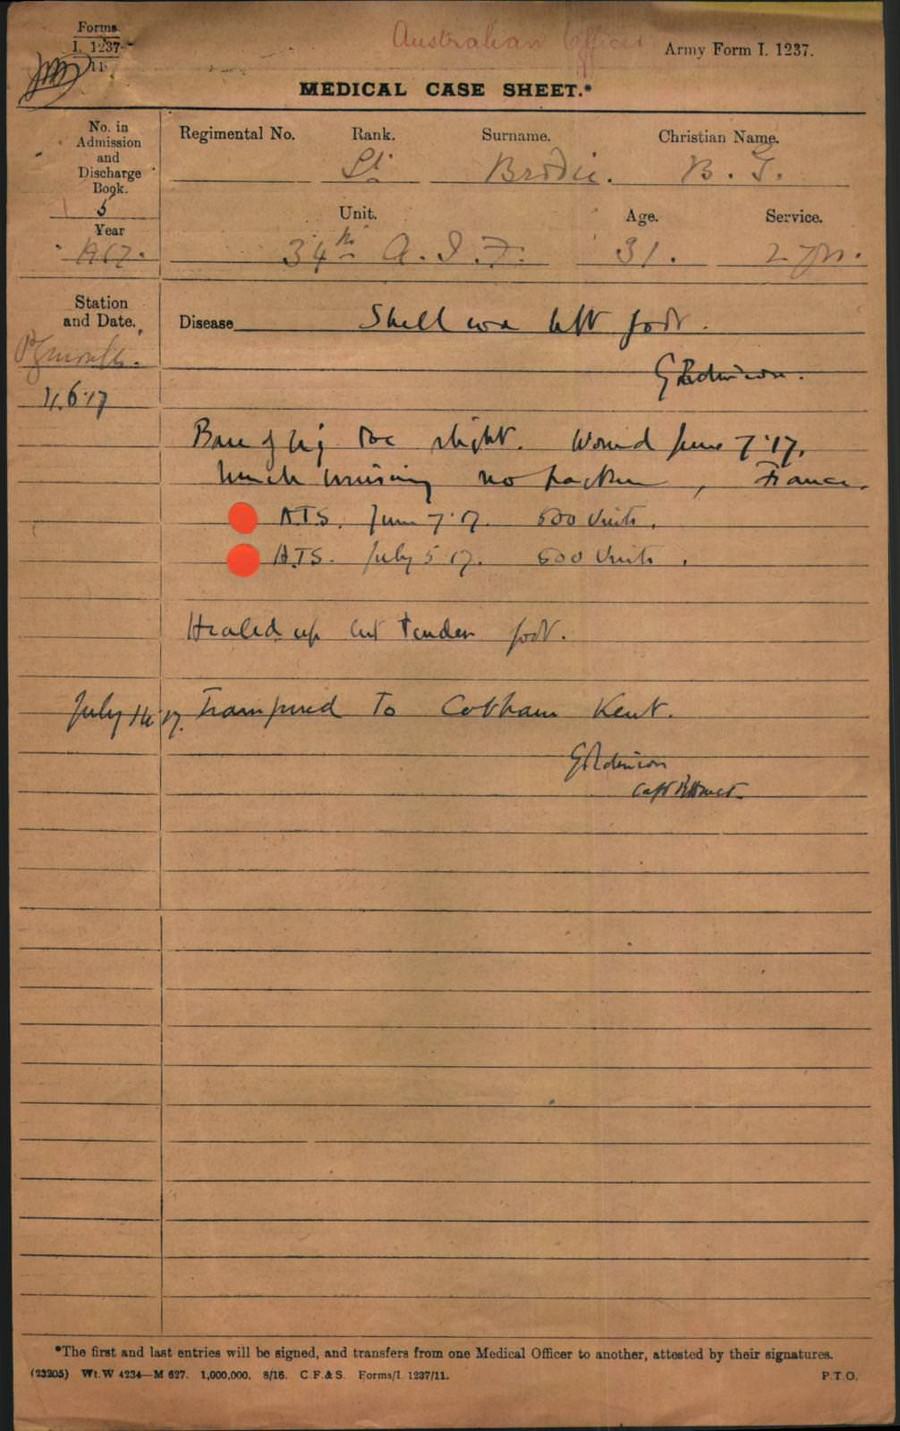 Forms
I. 1237
11
Australian Officer
Army Form I. 1237.
MEDICAL CASE SHEET.*
No. in
Admission
and
Discharge
Book.
5
Year
1917.
Regimental No. Rank. Surname. Christian Name.
Lt Brodie. B. G.
Unit. Age. Service.
34th A. I. F. 31. 2 yrs.
Station
and Date.
Plymouth.
Disease Shell wd left foot.
G Robinson.
11.6.17
Base of big toe slight. Wound June 7.17.
Much bruising no fracture, France.
ATS. June 7.17. 500 Units.
ATS. July 5 17. 500 Units.
Healed up but tender foot.
July 14 17. Transferred To Cobham Kent.
G Robinson
Capt RAMCT.
*The first and last entries will be signed, and transfers from one Medical Officer to another, attested by their signatures.
(23205) Wt. W 4234—M 627. 1,000,000. 8/16. C.F.&S. Forms/I. 1237/11.
P.T.O.